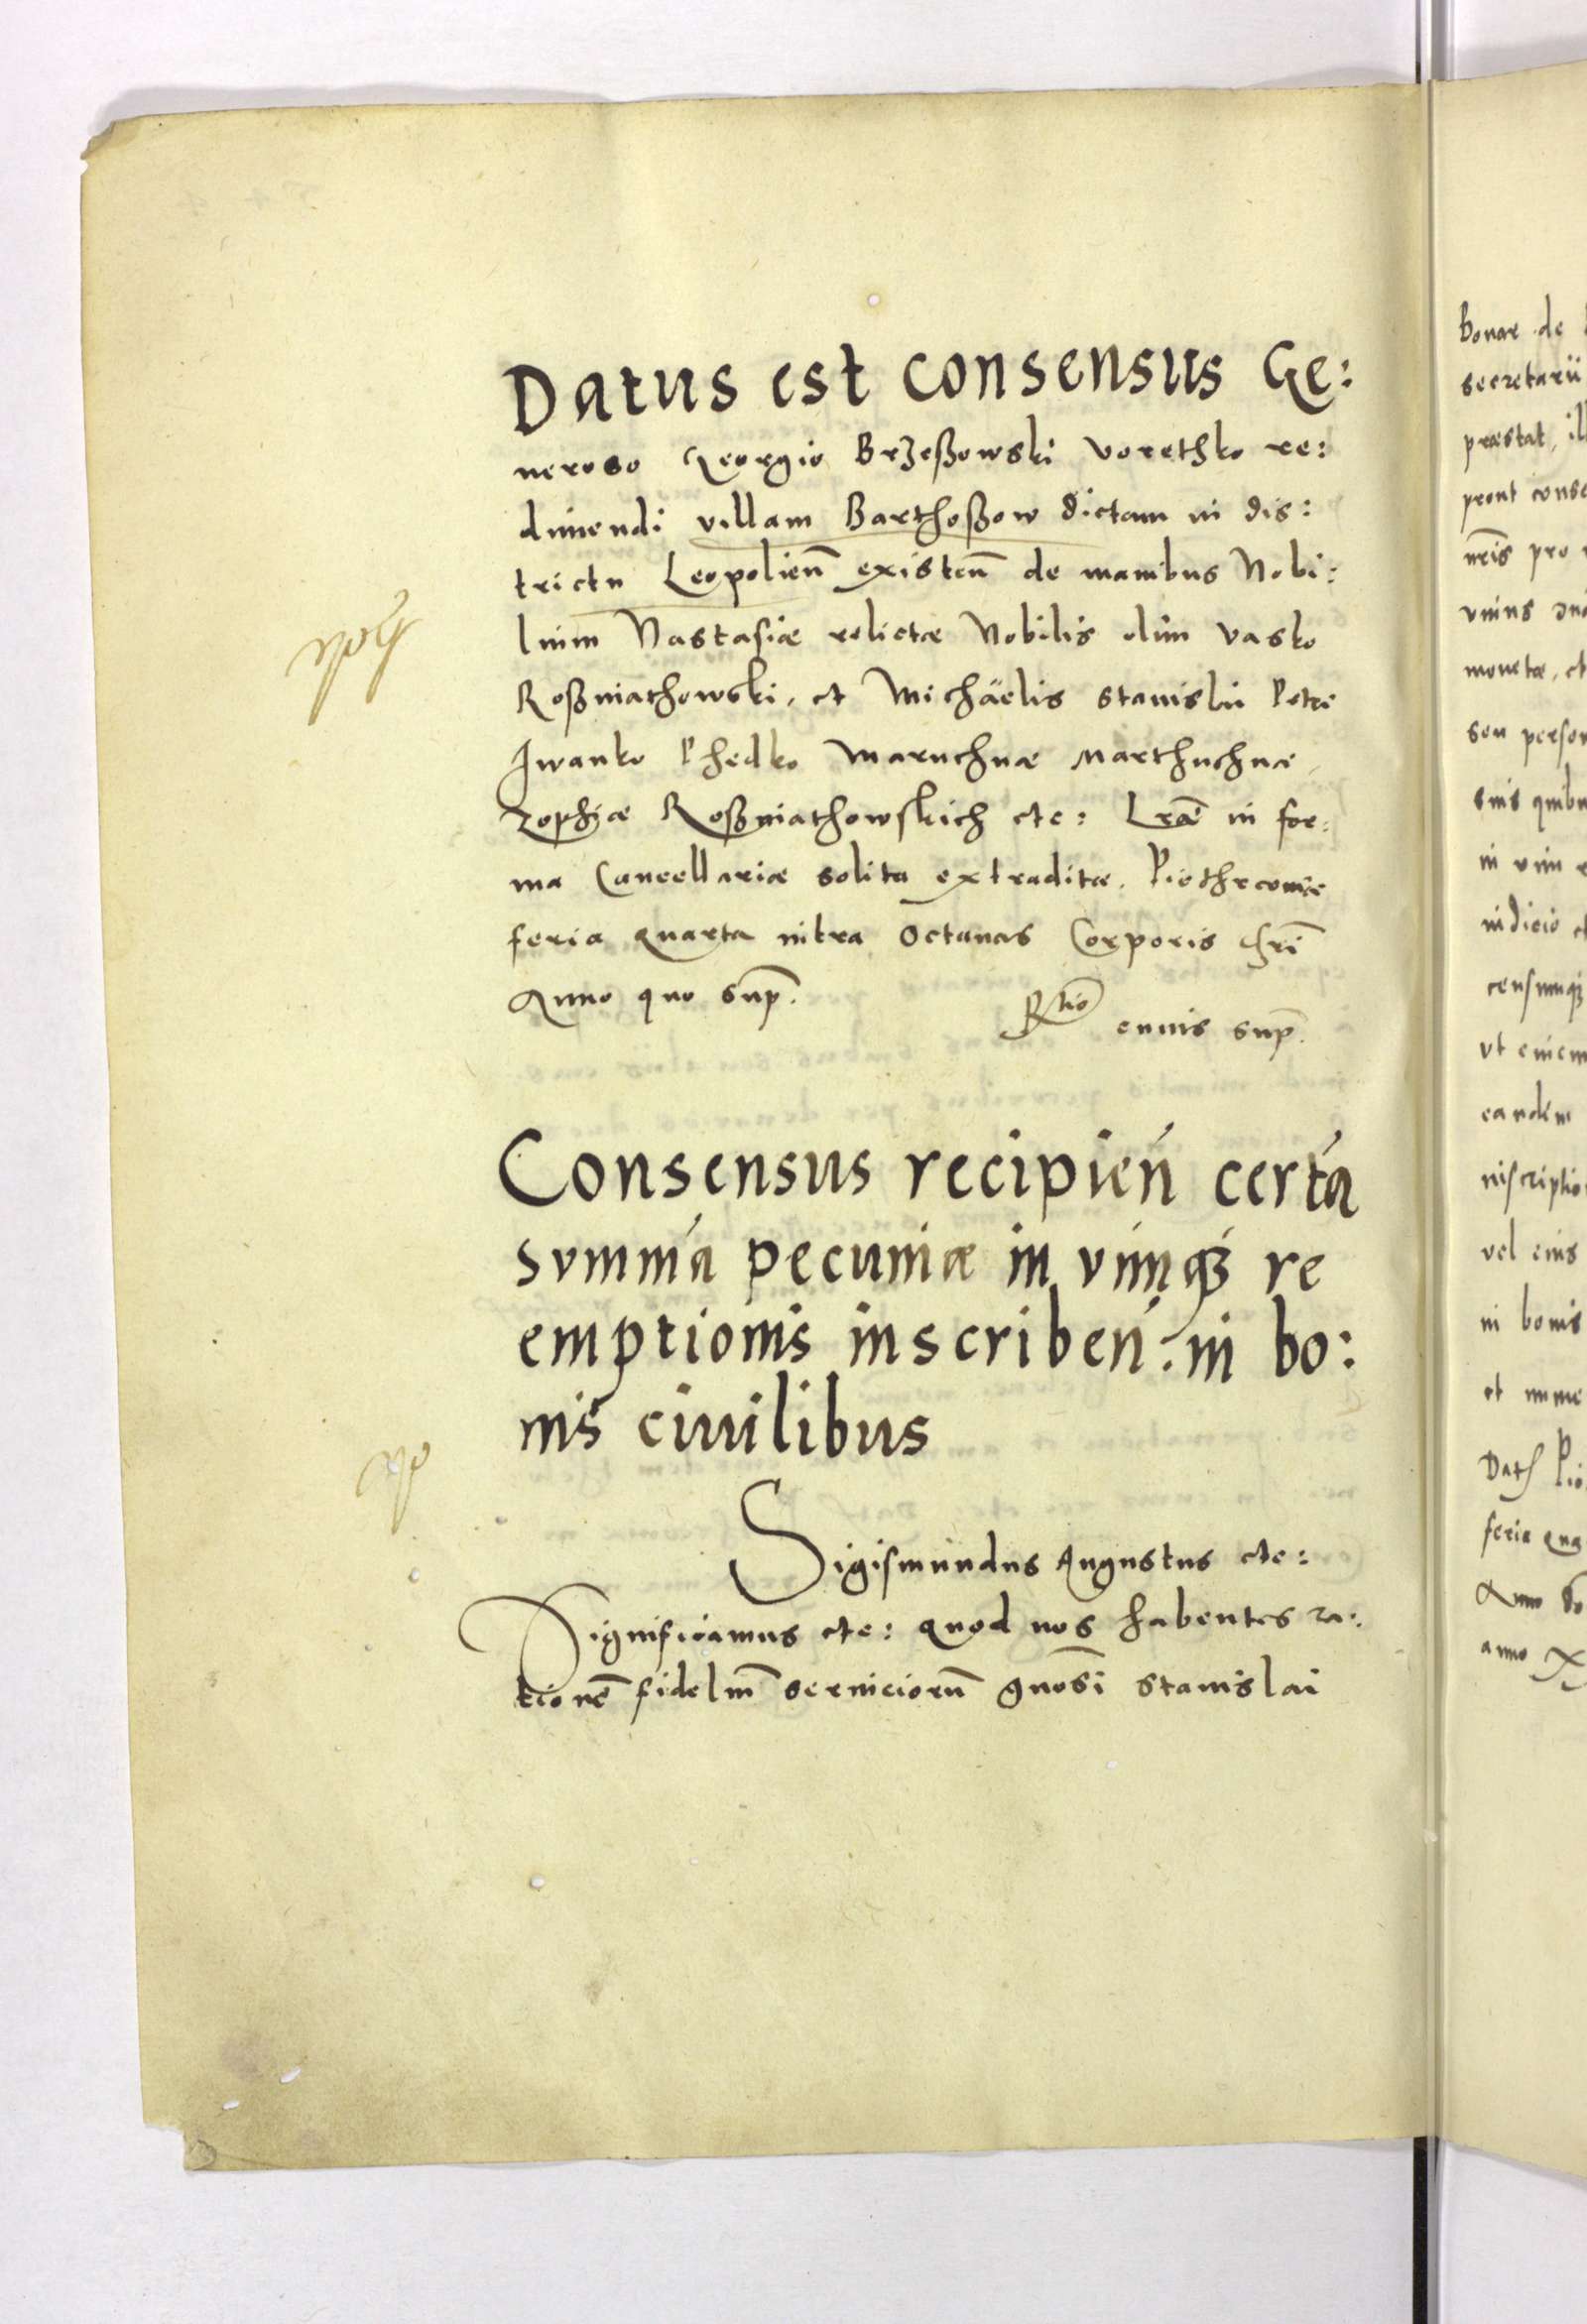 Datus est consensus Ge:
neroso Georgio Brzeßowski Vorethko re:
dimendi villam Barthoßow dictam in dis:
trictu Leopolien̄ existen̄ de manibus Nobi:
lium Nastasiæ relictæ Nobilis olim Vasko
Roßniathowski, et Michäelis Stanislai Petri
Iwanko Phedko Maruchnæ Marthuchnæ
Zophiæ Roßniathowskich etc: Lrǣ in for:
ma Cancellariæ solita extraditæ. Piothrcoviæ
feria quarta intra Octauas Corporis chrī
Anno quo sup̄.
R̄tio eiuis sup̄.
Consensus recipień certá
svmmá pecuniæ in vimq́ꝫ re
emptionis inscribeń: in bo:
nis ciuilibus
Sigismundus Augustus etc:
Significamus etc: quod nos habentes ra:
tionē fidelium̄ seruiciorū gnosī Stanislai
bonar de
secretarii
præstat, ill
prout conse
nrīs pro
vnius
monetæ, et
seu person
suis quibu
in vim r
iudicio et
censumqꝫ
vt eniem
eandem
inscriptio
vel eius
in bonis
et nume
Dat Pio
feria qua
Anno do
anno X